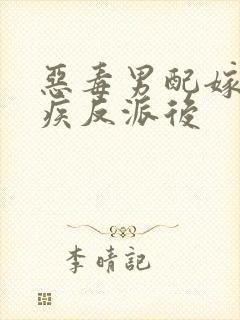 惡毒男配嫁
疾反派後
李晴記